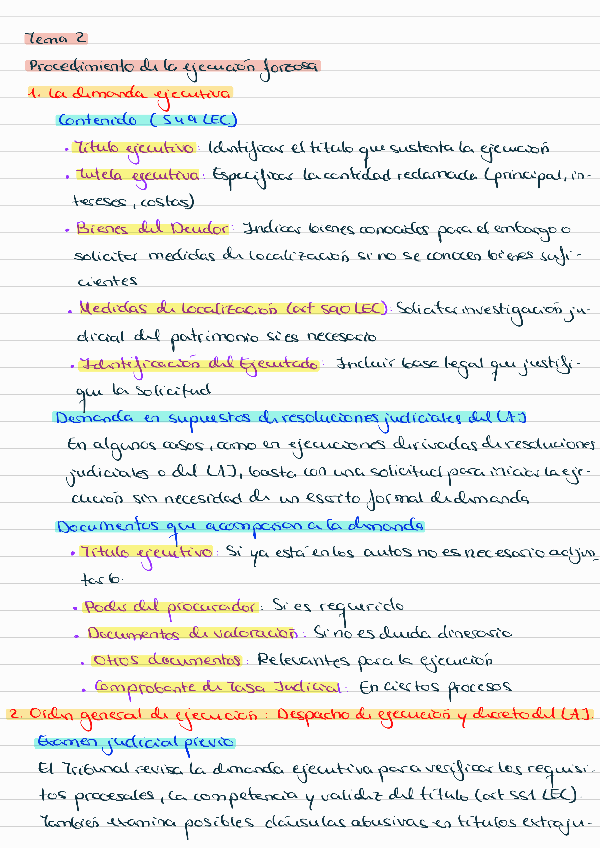 Tema 2
Procedimiento de la ejecución forzosa
1. La demanda ejecutiva
Contenido (549 LEC)
• Título ejecutivo: Identificar el título que sustenta la ejecución
• Tutela ejecutiva: Especificar la cantidad reclamada (principal, in-
tereses, costas)
• Bienes del Deudor: Indicar bienes conocidos para el embargo o
solicitar medidas de localización si no se conocen bienes sufi-
cientes
• Medidas de localización (art 590 LEC): Solicitar investigación ju-
dicial del patrimonio si es necesario
• Identificación del Ejecutado: Incluir base legal que justifi-
que la solicitud
Demanda en supuestos de resoluciones judiciales del LAJ
En algunos casos, como en ejecuciones derivadas de resoluciones
judiciales o del LAJ, basta con una solicitud para iniciar la eje-
cución sin necesidad de un escrito formal de demanda
Documentos que acompañan a la demanda
• Título ejecutivo: Si ya está en los autos no es necesario adjun
tarlo.
• Poder del procurador: Si es requerido
• Documentos de valoración: Si no es deuda dineraria
• Otros documentos: Relevantes para la ejecución
• Comprobante de Tasa Judicial: En ciertos procesos
2. Orden general de ejecución: Despacho de ejecución y decreto del LAJ.
Examen judicial previo
El Tribunal revisa la demanda ejecutiva para verificar los requisi-
tos procesales, la competencia y validez del título (art 551 LEC)
También examina posibles cláusulas abusivas en títulos extraju-